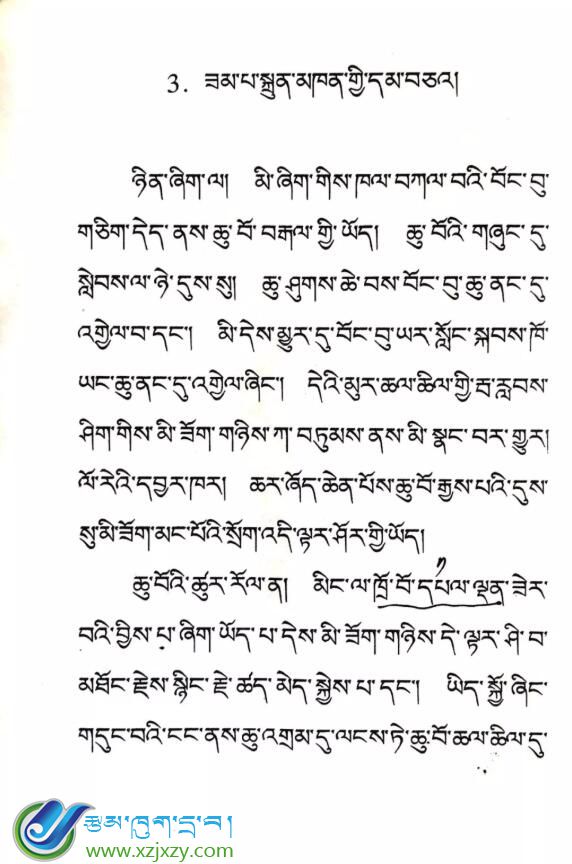 3. ཟམ་པ་སྐྲུན་མཁན་གྱི་དམ་བཅའ།
ཉིན་ཞིག་ལ། མི་ཞིག་གིས་ཁལ་བཀལ་བའི་བོང་བུ་
གཅིག་དེད་ནས་ཆུ་བོ་བརྒལ་གྱི་ཡོད། ཆུ་བོའི་གཞུང་དུ་
སླེབས་ལ་ཉེ་དུས་སུ། ཆུ་ཤུགས་ཆེ་བས་བོང་བུ་ཆུ་ནང་དུ་
འགྱེལ་བ་དང་། མི་དེས་མྱུར་དུ་བོང་བུ་ཡར་སློང་སྐབས་ཁོ་
ཡང་ཆུ་ནང་དུ་འགྱེལ་ཞིང་། དེའི་མུར་ཆལ་ཆིལ་གྱི་རྦ་རླབས་
ཤིག་གིས་མི་ཟོག་གཉིས་ཀ་བཏུམས་ནས་མི་སྣང་བར་གྱུར།
ལོ་རེའི་དབྱར་ཁར། ཆར་ཞོད་ཆེན་པོས་ཆུ་བོ་རྒྱས་པའི་དུས་
སུ་མི་ཟོག་མང་པོའི་སྲོག་འདི་ལྟར་ཤོར་གྱི་ཡོད།
ཆུ་བོའི་ཚུར་རོལ་ན། མིང་ལ་ཁྲོ་བོ་དཔལ་ལྡན་ཟེར་
བའི་བྱིས་པ་ཞིག་ཡོད་པ་དེས་མི་ཟོག་གཉིས་དེ་ལྟར་ཤི་བ་
མཐོང་རྗེས་སྙིང་རྗེ་ཚད་མེད་སྐྱེས་པ་དང་། ཡིད་སྐྱོ་ཞིང་
གདུང་བའི་ངང་ནས་ཆུ་འགྲམ་དུ་ལངས་ཏེ་ཆུ་བོ་ཆལ་ཆིལ་དུ་
www.xzjxzy.com